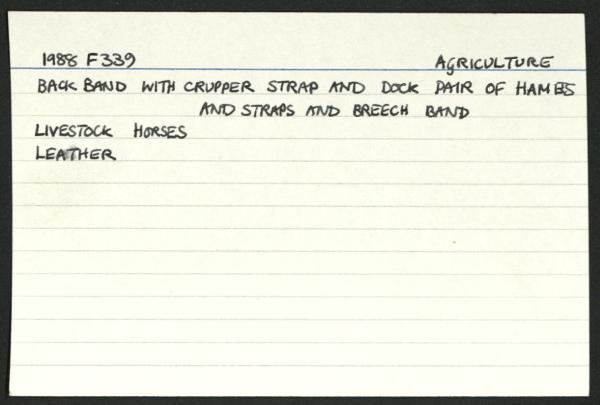 1988 F339 AGRICULTURE
BACK BAND WITH CRUPPER STRAP AND DOCK PAIR OF HAMES
AND STRAPS AND BREECH BAND
LIVESTOCK HORSES
LEATHER